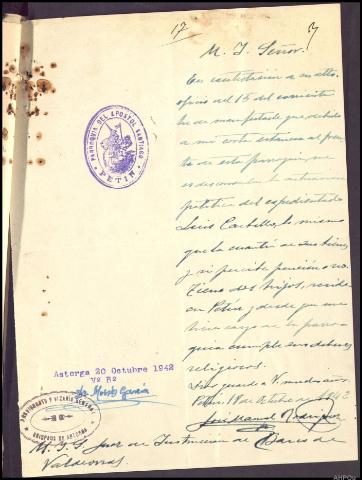 17
M. I. Señor:
En contestación a su atto.
oficio del 15 del corriente
he de manifestarle que debido
a mi corta estancia al frente
de esta parroquia, me
es desconocida la actuación
política del expedientado
Luis Carballo, lo mismo
que la cuantía de sus bienes
y si percibe pensión o no.
Tiene dos hijos, reside
en Petín y desde que me
hice cargo de la parro-
quia cumple sus deberes
religiosos.
Dios guarde a V. muchos años.
Petín 18 de Octubre de 1942
Manuel Rodríguez
PARROQUIA DEL APOSTOL SANTIAGO
PETIN
Astorga 20 Octubre 1942
Vº Bº
García
PROVISORATO Y VICARIA GENERAL
OBISPADO DE ASTORGA
M. I. S. Juez de Instrucción de Barco de
Valdeorras.
AHPOu